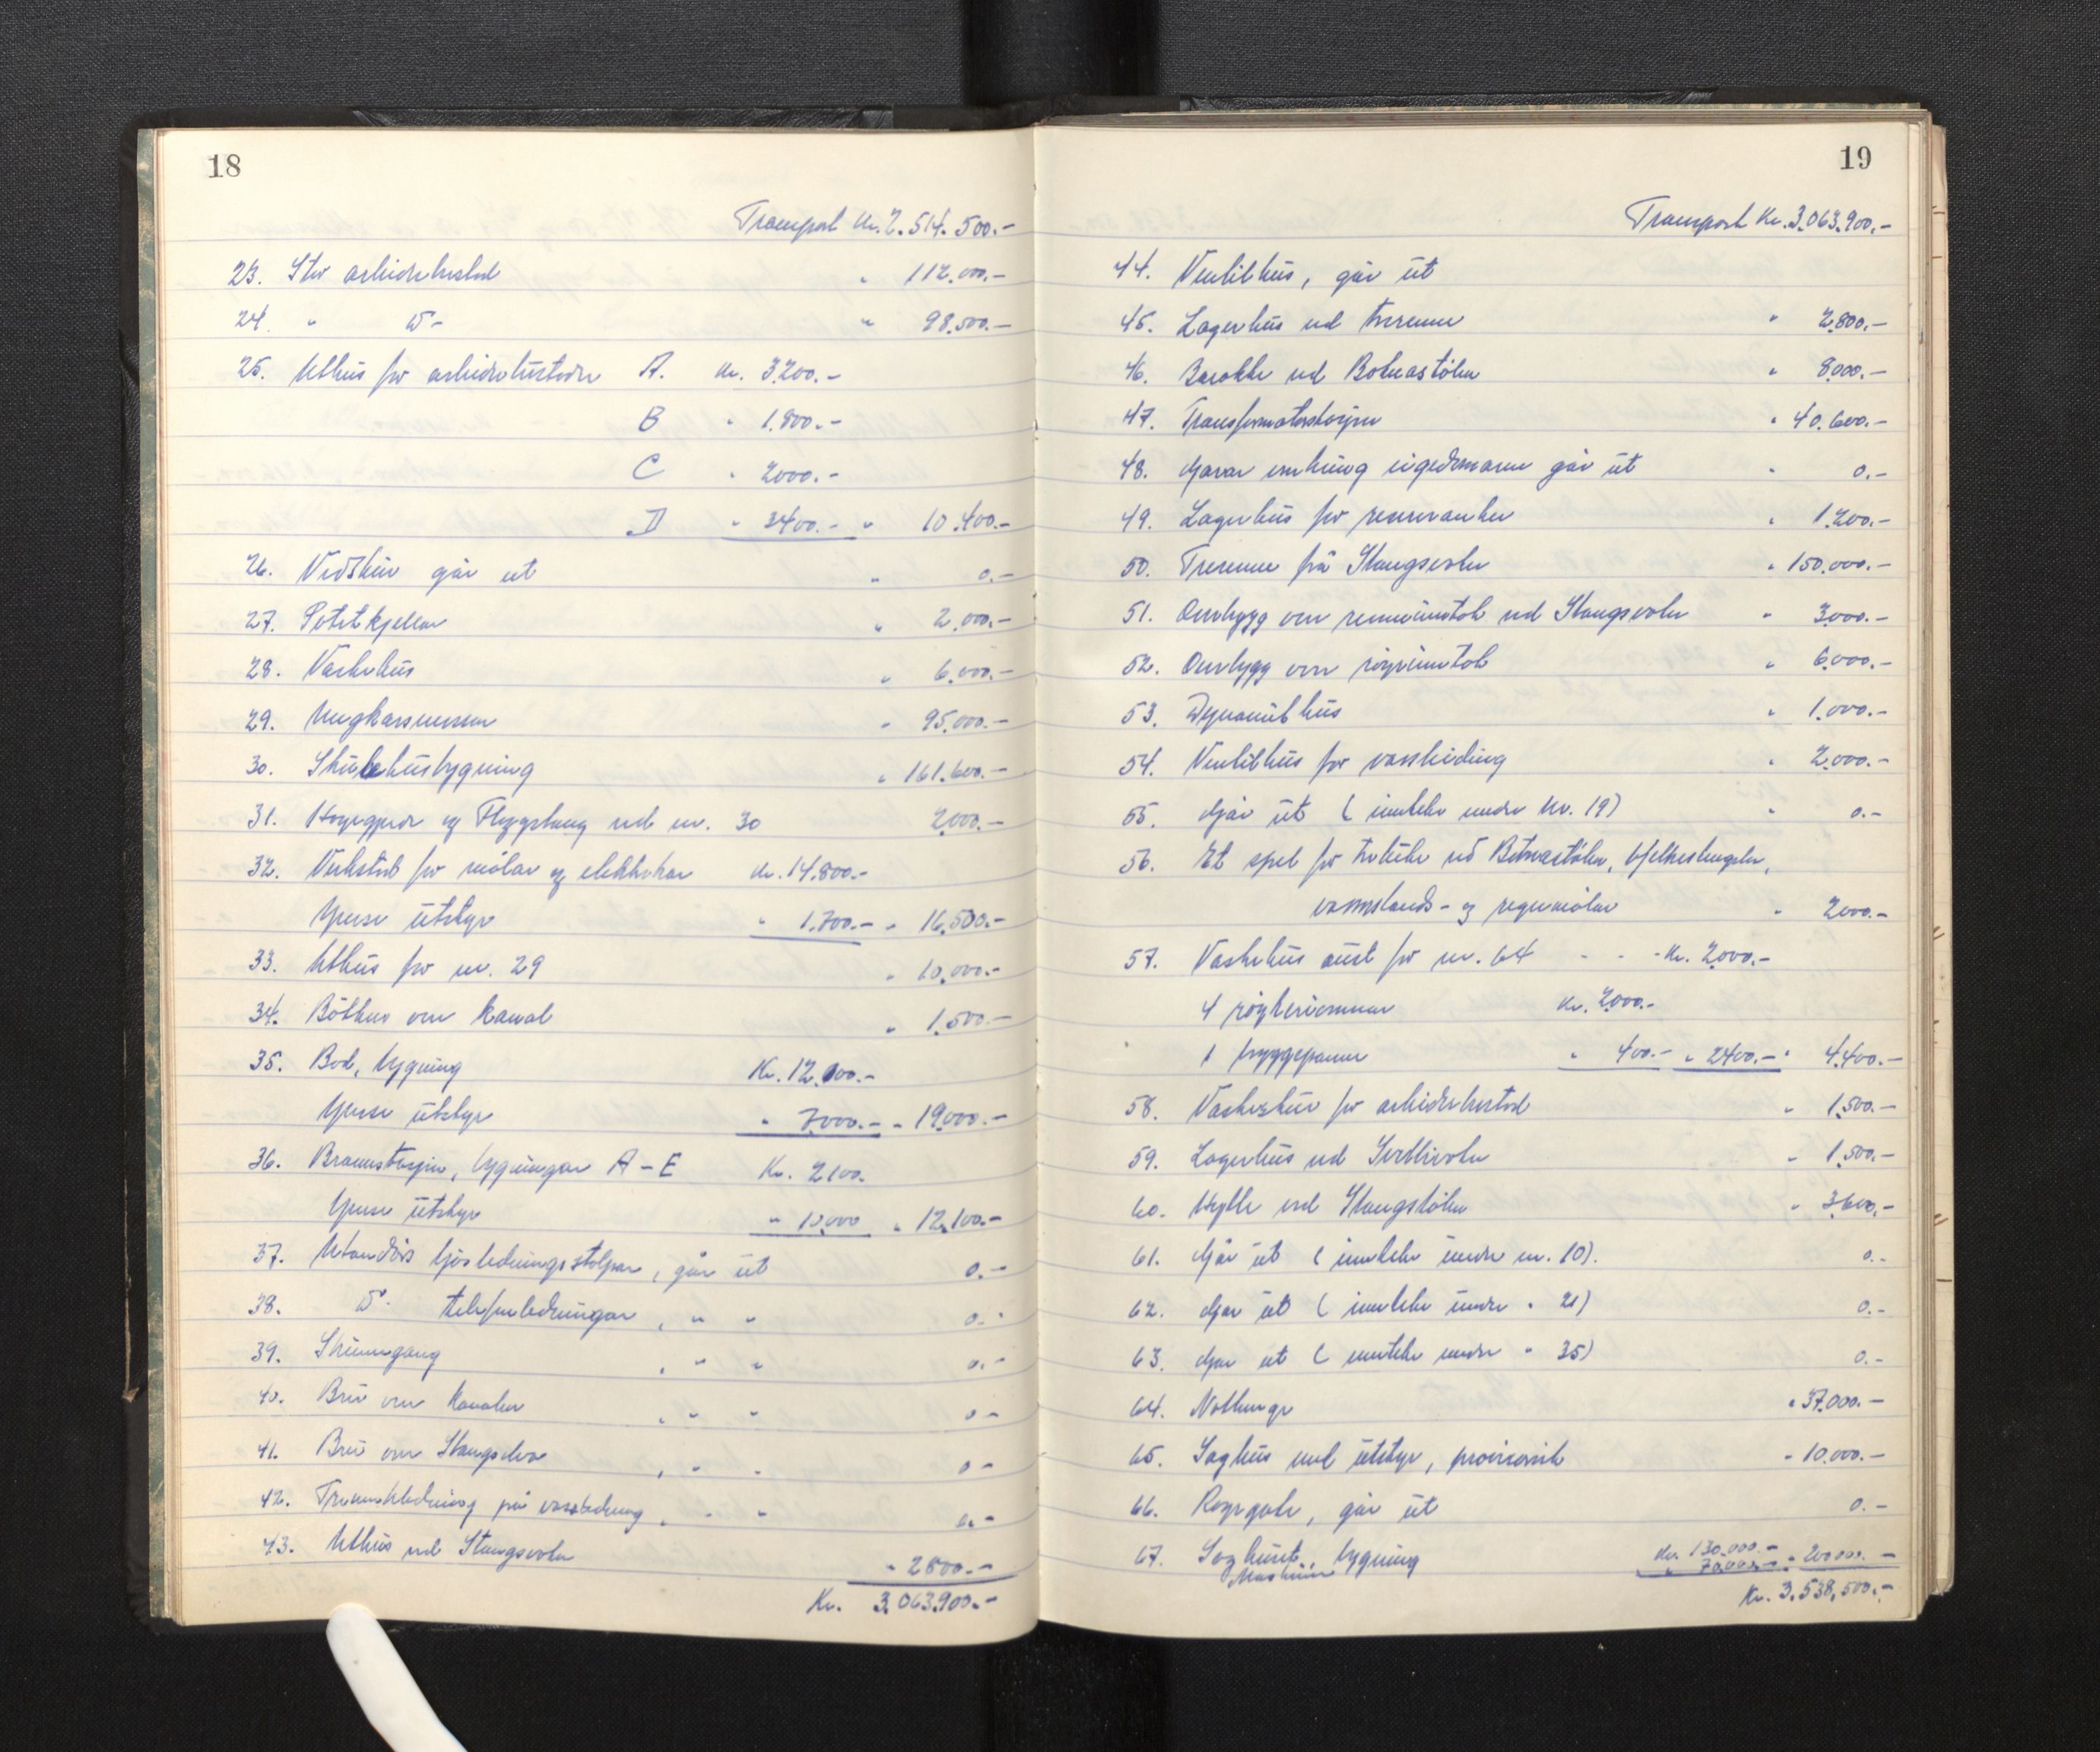 18
Transport Kr. 2.514.500.-
23. Stor arbeidarbustad " 112.000.-
24. " D°- " 98.500.-
25. Uthus for arbeidarbustader A. Kr. 3.200.-
B " 1.800.-
C " 2000.-
D " 3400.- " 10.400.-
26. Vedskur går ut " 0.-
27. Potetkjellar " 2.000.-
28. Vaskehus " 6.000.-
29. Ungkarsmessen " 95.000.-
30. Skulehusbygning " 161.600.-
31. Hagegjerde og Flaggstang ved nr. 30 2000.-
32. Verkstad for målar og elektrikar Kr. 14.800.-
Ymse utstyr " 1.700.- " 16.500.-
33. Uthus for nr. 29 " 10.000.-
34. Båthus over kanal " 1.500.-
35. Bod, bygning Kr. 12.000.-
Ymse utstyr " 7.000.- " 19.000.-
36. Brannstasjon, bygningar A-E Kr. 2100.
Ymse utstyr " 10.000 " 12.100.-
37. Utandørs ljosledningsstolpar, går ut 0.-
38. D°. telefonledningar, " " 0.-
39. Skinnegang , " " 0.-
40. Bru over kanalen , " " 0-
41. Bru over Stangselva , " " 0-
42. Trammekledning på vassledning, " " 0.-
43. Uthus ved Stangsvatn " 2800.-
Kr. 3.063.900.-
19
Transport Kr. 3.063.900.-
44. Ventilhus, går ut
45. Lagerhus ved trerenne " 2.800.-
46. Barakke ved Botnastølen " 8.000.-
47. Transformatorstasjon " 40.600.-
48. Gjerde omkring eigedomane går ut " 0.-
49. Lagerhus for reserveanker " 1.200.-
50. Trerenne frå Stangsvatn " 150.000.-
51. Overbygg over renneinntak ved Stangsvatn " 3000.-
52. Overbygg over røyrinntak " 6.000.-
53. Dynamithus " 1.000.-
54. Ventilhus for vassleidning " 2.000.-
55. Går ut (innteke under Nr. 19) " 0.-
56. Et spel for luke ved Botnastølen,
vasstands- og regnmålar " 2000.-
57. Vaskehus aust for nr. 64 - - - Kr. 2.000.-
4 Kr. 2.000.-
1 bryggepanne " 400.- " 2400.- " 4.400.-
58. Vaskeskur for arbeidarbustad " 1.500.-
59. Lagerhus ved " 1.500.-
60. Hytte ved Stangstølen " 3.600.-
61. Går ut (innteke under nr. 10). 0.-
62. Går ut (innteke under " 21) 0.-
63. Går ut (innteke under " 35) 0.-
64. " 37.000.-
65. Saghus med utstyr, provisorisk " 10.000.-
66. Røyrgate, går ut 0.-
67. Saghuset, bygning Kr. 130.000.-
Maskiner " 70.000.- " 200000.-
Kr. 3.538,500.-